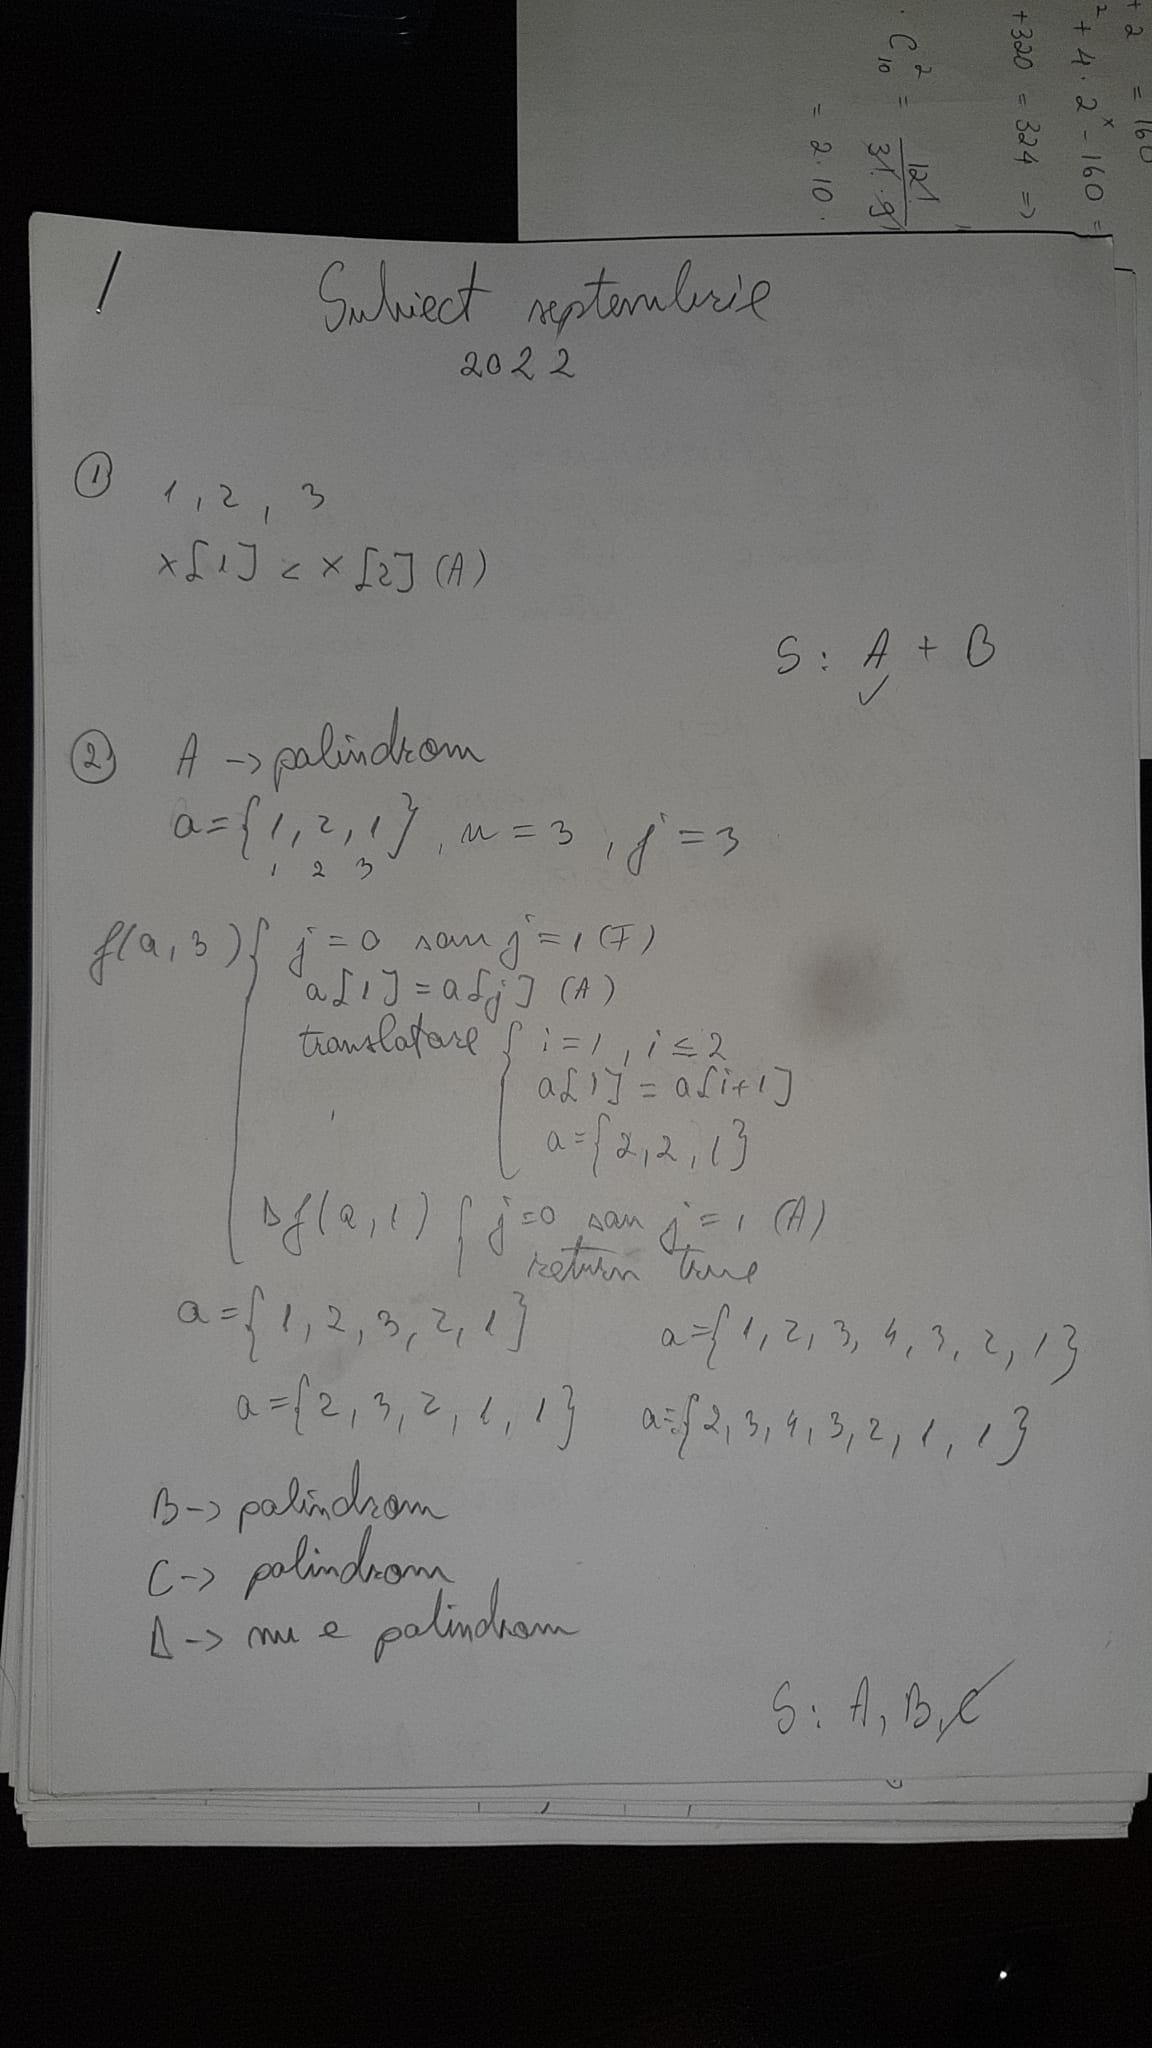 + 2 = 160
2 + 4 · 2^x - 160 =
+320 = 324 =>
· C₁₀² = 12! / 3! · 9!
= 2 · 10 ·
1
Subiect septembrie
2022
① 1, 2, 3
x[1] < x[2] (A)
S: A + B
✓
② A -> palindrom
a={1, 2, 1}, n = 3, j = 3
1 2 3
f(a, 3) { j = 0 sau j = 1 (F)
a[1] = a[j] (A)
translatare { i = 1, i ≤ 2
a[1] = a[i+1]
a={2, 2, 1}
Δf(a, 1) { j=0 sau j = 1 (A)
return true
a={1, 2, 3, 2, 1} a={1, 2, 3, 4, 3, 2, 1}
a={2, 3, 2, 1, 1} a={2, 3, 4, 3, 2, 1, 1}
B-> palindrom
C-> palindrom
Δ-> nu e palindrom
S: A, B, C